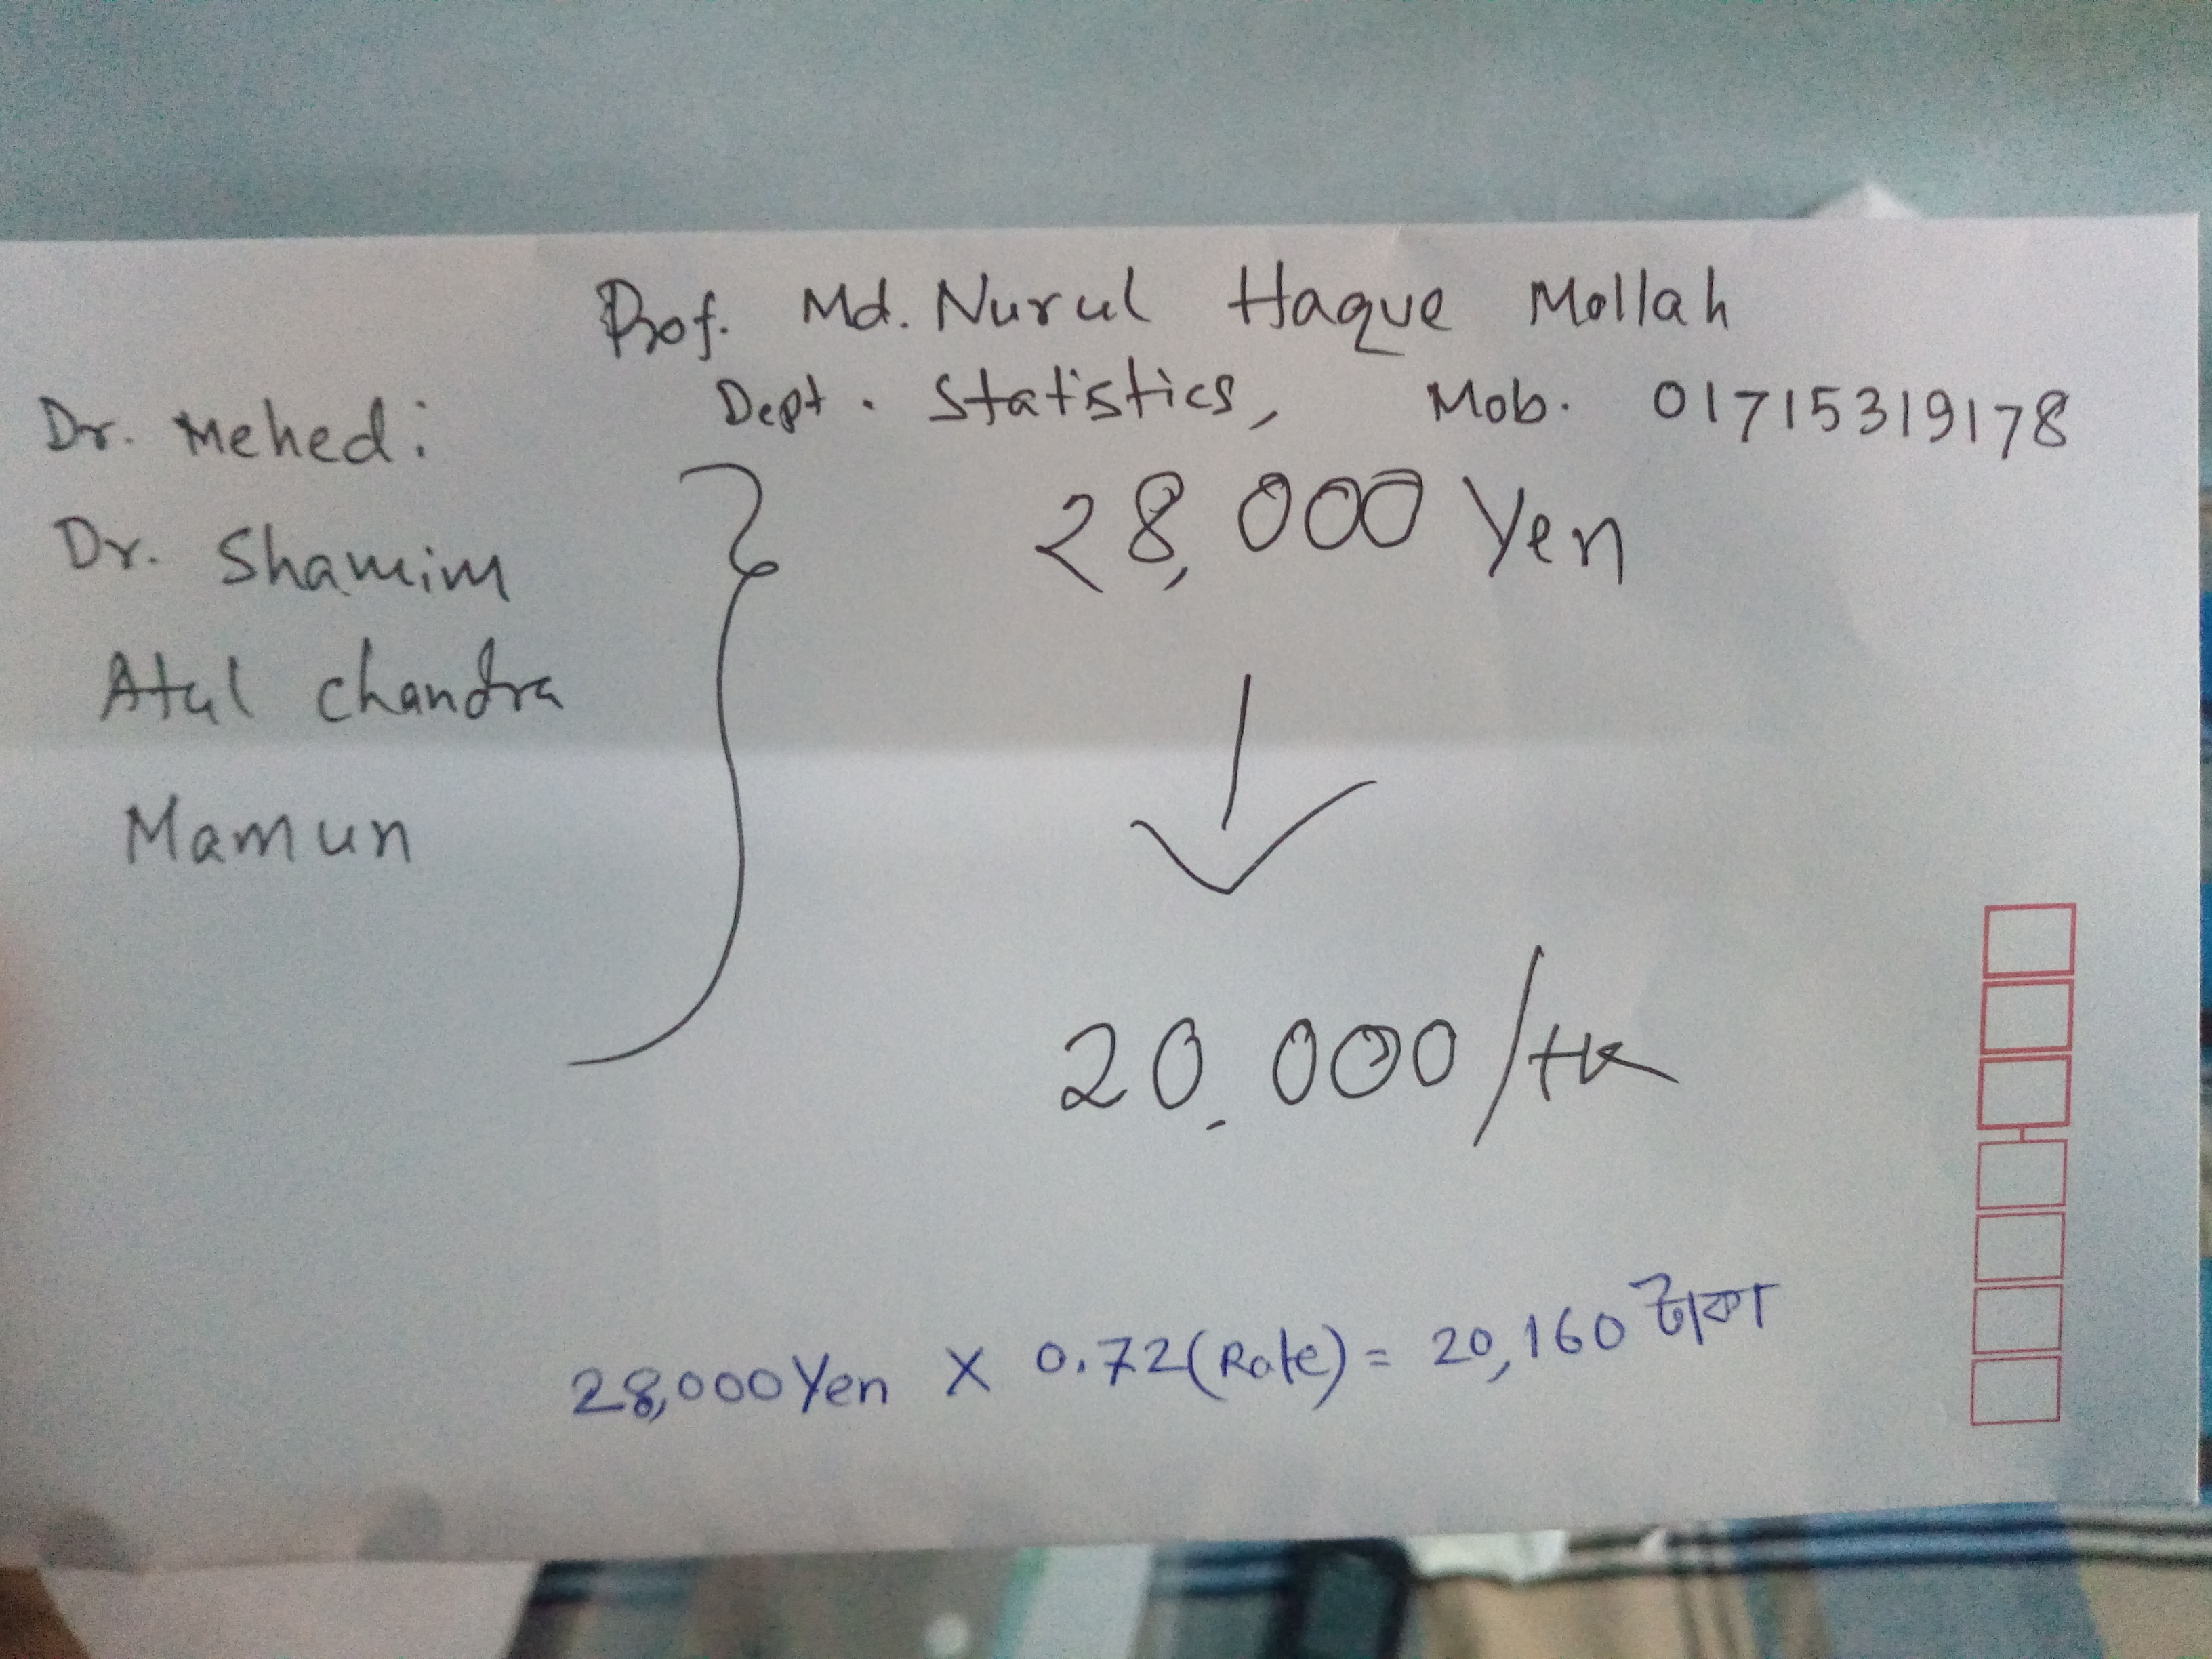 Prof. Md. Nurul Haque Mollah
Dept. Statistics, Mob. 01715319178
Dr. Mehedi
Dr. Shamim
Atul chandra
Mamun
28,000 Yen
20,000/tk
28,000 Yen X 0.72 (Rate) = 20,160 টাকা